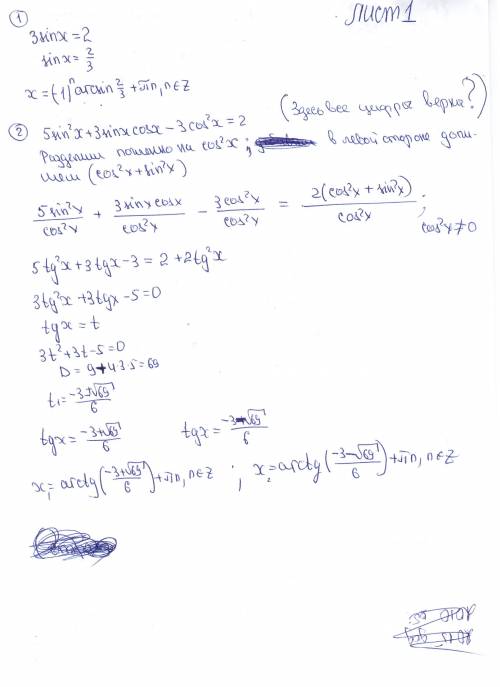 Лист 1
①
3sinx=2
sinx=2/3
x=(-1)ⁿarcsin 2/3+πn, n∈Z
(Здесь все цифры верна?)
② 5sin²x+3sinxcosx-3cos²x=2
Разделим почленно на cos²x; в левой стороне допи-
шем (cos²x+sin²x)
5sin²x/cos²x + 3sinxcosx/cos²x - 3cos²x/cos²x = 2(cos²x+sin²x)/cos²x ; cos²x≠0
5tg²x+3tgx-3=2+2tg²x
3tg²x+3tgx-5=0
tgx=t
3t²+3t-5=0
D=9+4·3·5=69
t₁=-3±√69/6
tgx=-3+√69/6 tgx=-3-√69/6
x₁=arctg(-3+√69/6)+πn, n∈Z ; x₂=arctg(-3-√69/6)+πn, n∈Z